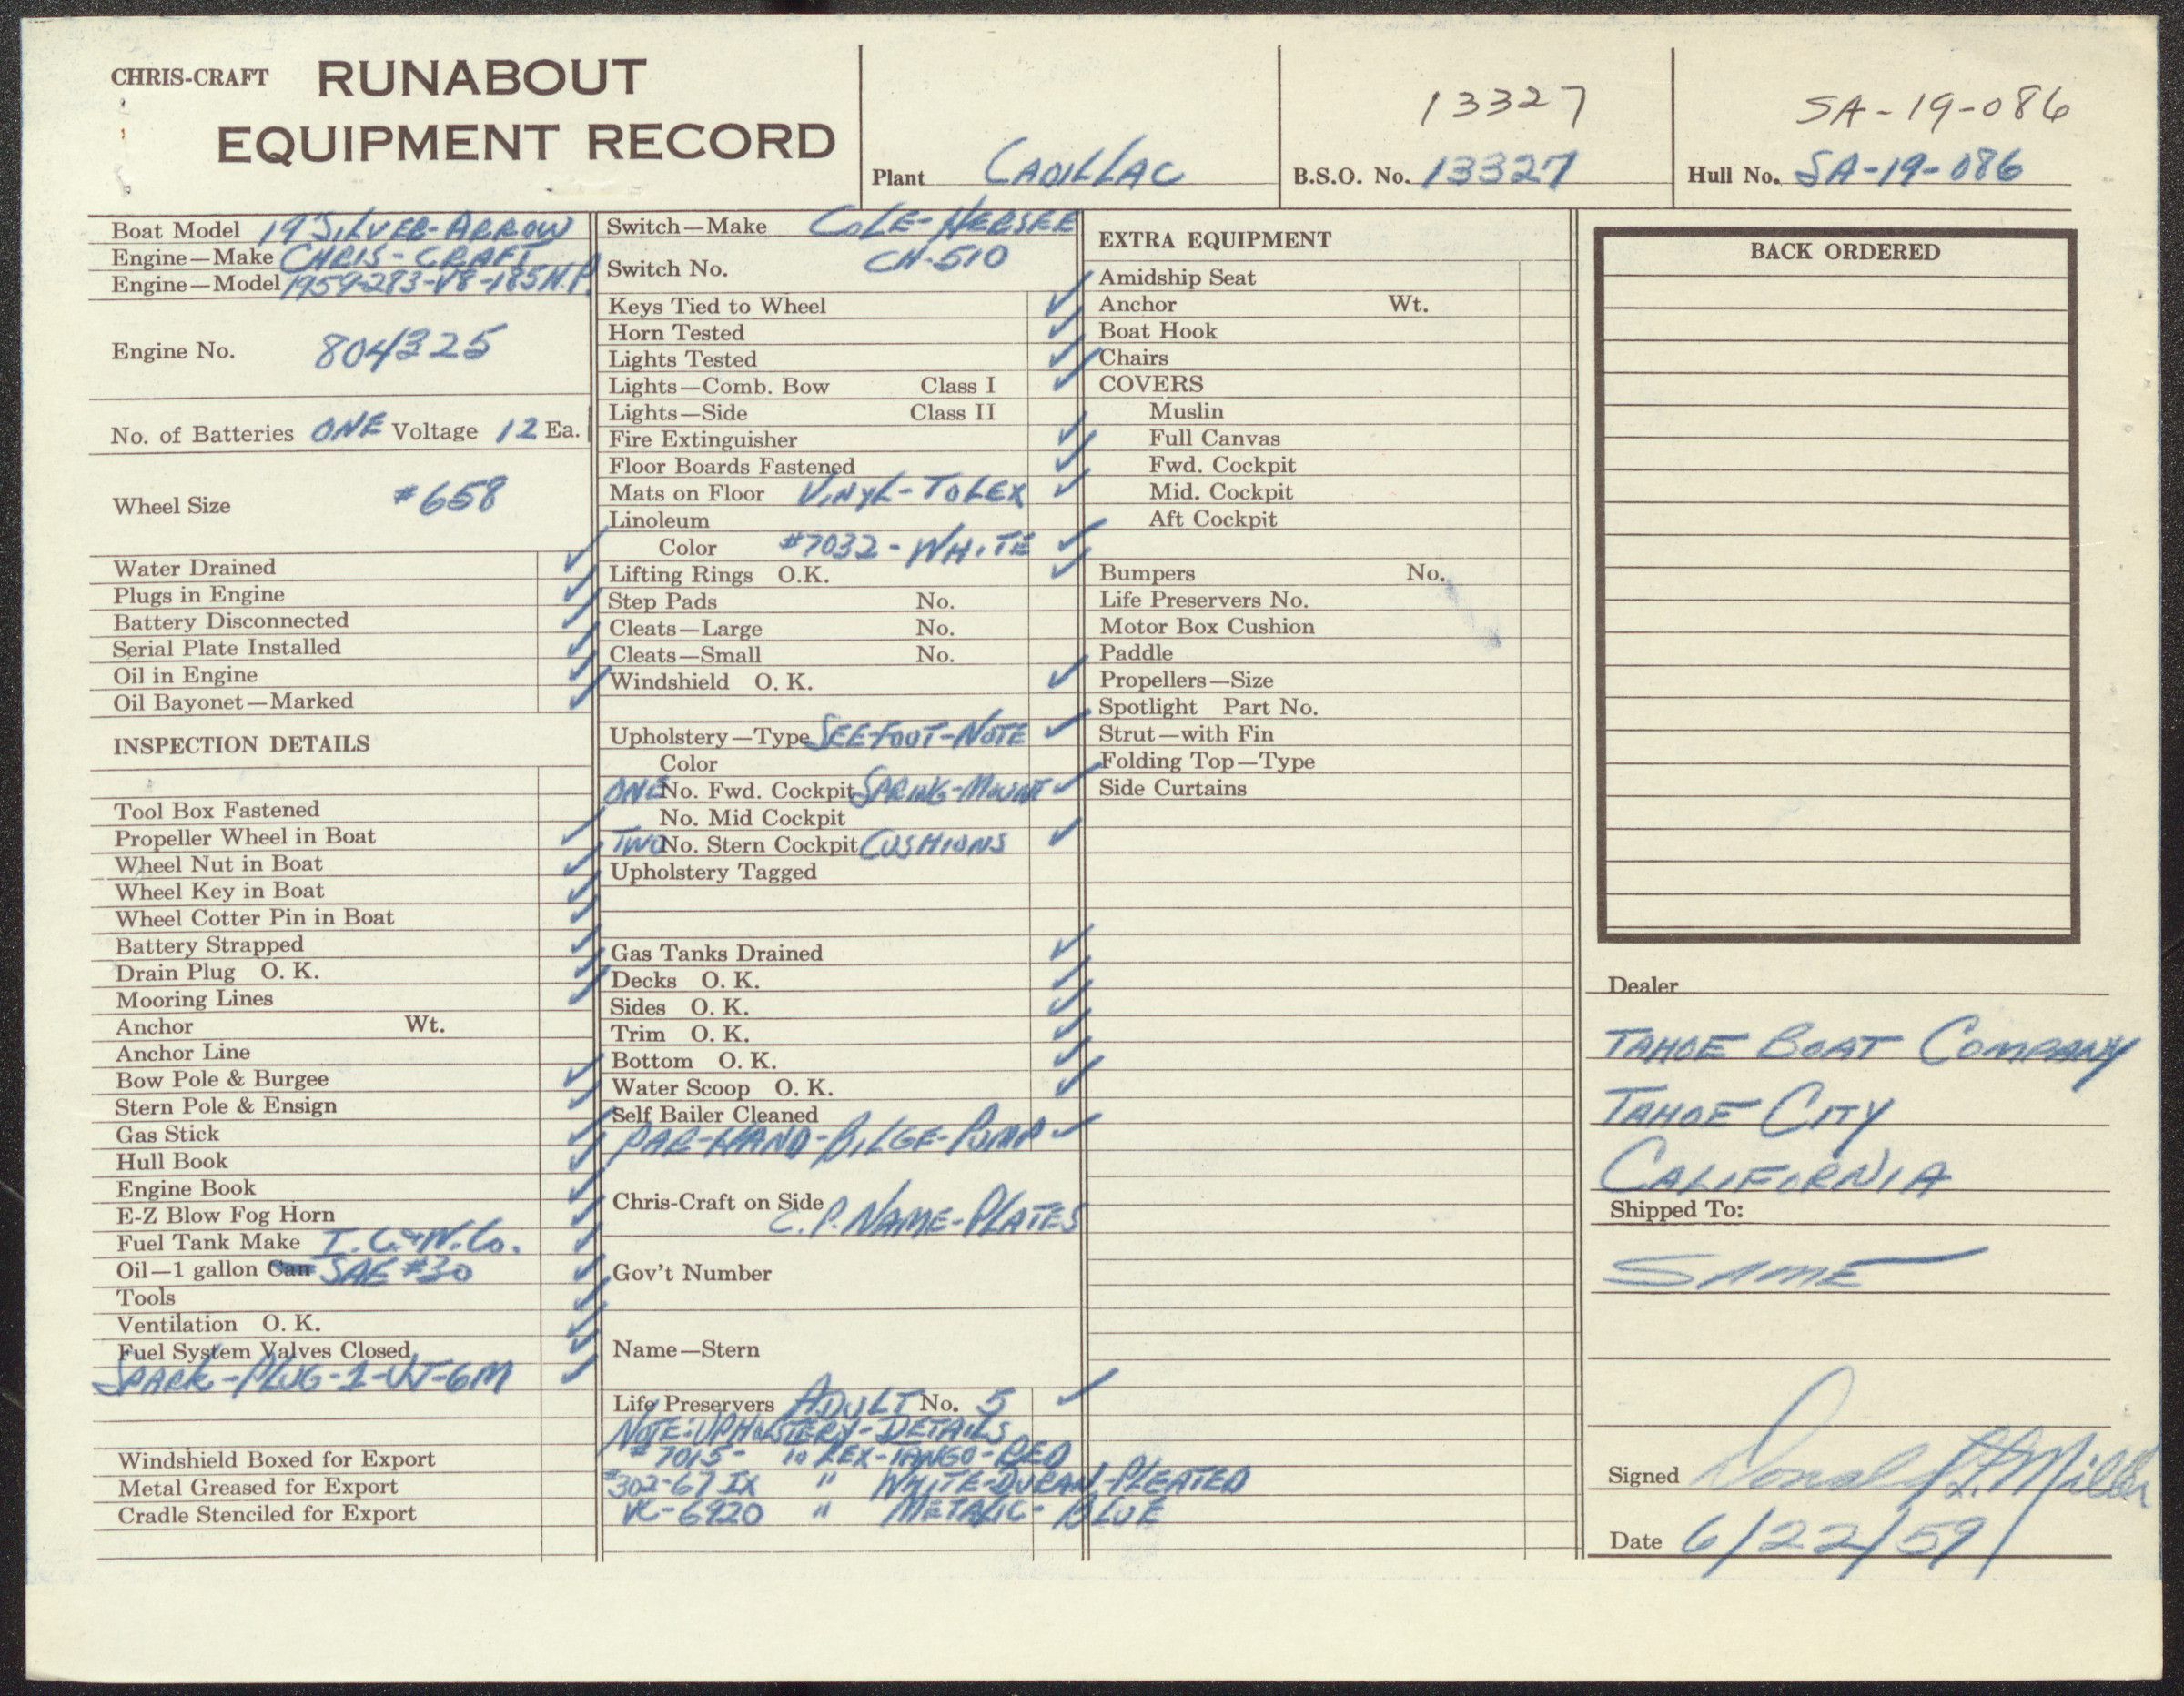 CHRIS-CRAFT RUNABOUT
EQUIPMENT RECORD
Plant CADILLAC
13327
B.S.O. No. 13327
SA-19-086
Hull No. SA-19-086
Boat Model 19' SILVER-ARROW
Engine—Make CHRIS-CRAFT
Engine—Model 1959-283-V8-185H.P.
Engine No. 804325
No. of Batteries ONE Voltage 12 Ea.
Wheel Size #658
Water Drained ✓
Plugs in Engine ✓
Battery Disconnected ✓
Serial Plate Installed ✓
Oil in Engine ✓
Oil Bayonet—Marked ✓
INSPECTION DETAILS
Tool Box Fastened
Propeller Wheel in Boat ✓
Wheel Nut in Boat ✓
Wheel Key in Boat ✓
Wheel Cotter Pin in Boat ✓
Battery Strapped ✓
Drain Plug O. K. ✓
Mooring Lines ✓
Anchor Wt.
Anchor Line
Bow Pole & Burgee ✓
Stern Pole & Ensign ✓
Gas Stick ✓
Hull Book ✓
Engine Book ✓
E-Z Blow Fog Horn ✓
Fuel Tank Make I. C. & W. Co. ✓
Oil—1 gallon Can SAE #30 ✓
Tools ✓
Ventilation O. K. ✓
Fuel System Valves Closed ✓
SPARK-PLUG-1-UJ-6M ✓
Windshield Boxed for Export
Metal Greased for Export
Cradle Stenciled for Export
Switch—Make COLE-HERSEE
Switch No. CH-510
Keys Tied to Wheel ✓
Horn Tested ✓
Lights Tested ✓
Lights—Comb. Bow Class I ✓
Lights—Side Class II
Fire Extinguisher ✓
Floor Boards Fastened ✓
Mats on Floor VINYL-TOLEX ✓
Linoleum
Color #7032-WHITE ✓
Lifting Rings O.K. ✓
Step Pads No.
Cleats—Large No.
Cleats—Small No.
Windshield O. K. ✓
Upholstery—Type SEE-FOOT-NOTE ✓
Color
ONE No. Fwd. Cockpit SPRING-MOUNT ✓
No. Mid Cockpit
TWO No. Stern Cockpit CUSHIONS ✓
Upholstery Tagged
Gas Tanks Drained ✓
Decks O. K. ✓
Sides O. K. ✓
Trim O. K. ✓
Bottom O. K. ✓
Water Scoop O. K. ✓
Self Bailer Cleaned
PAR-HAND-BILGE-PUMP ✓
Chris-Craft on Side C.P. NAME-PLATES
Gov't Number
Name—Stern
Life Preservers ADULT No. 5 ✓
NOTE: UPHOLSTERY-DETAILS
#7015- TOLEX-TANGO-RED
#302-67 IX " WHITE-DURAN-PLEATED
VC-6920 " METALIC-BLUE
EXTRA EQUIPMENT
Amidship Seat
Anchor Wt.
Boat Hook
Chairs
COVERS
Muslin
Full Canvas
Fwd. Cockpit
Mid. Cockpit
Aft Cockpit
Bumpers No.
Life Preservers No.
Motor Box Cushion
Paddle
Propellers—Size
Spotlight Part No.
Strut—with Fin
Folding Top—Type
Side Curtains
BACK ORDERED
Dealer
TAHOE BOAT COMPANY
TAHOE CITY
CALIFORNIA
Shipped To:
SAME
Signed Donald L. Miller
Date 6/22/59